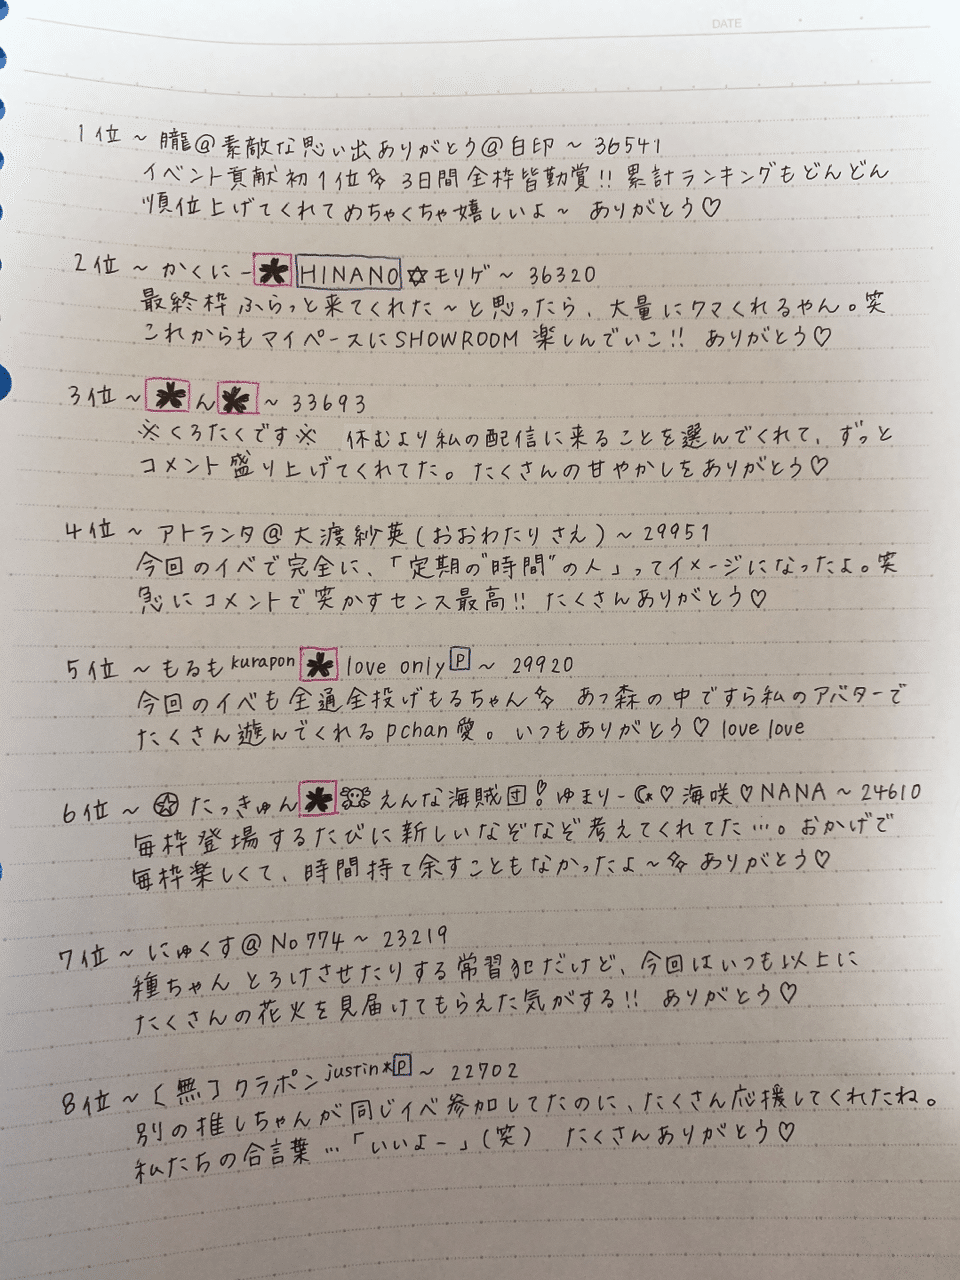 DATE
1位 ~ 朧@素敵な思い出ありがとう@白印 ~ 36541
イベント貢献初1位💐 3日間全枠皆勤賞!! 累計ランキングもどんどん
順位上げてくれてめちゃくちゃ嬉しいよ~ ありがとう♡
2位 ~ かくにー HINANO ✡モリゲ ~ 36320
最終枠ふらっと来てくれた~と思ったら、大量にクマくれるやん。笑
これからもマイペースにSHOWROOM楽しんでいこ!! ありがとう♡
3位 ~ ん ~ 33693
※くろたくです※ 休むより私の配信に来ることを選んでくれて、ずっと
コメント盛り上げてくれてた。たくさんの甘やかしをありがとう♡
4位 ~ アトランタ@大渡紗英(おおわたりさえ) ~ 29951
今回のイベで完全に、「定期の"時間"の人」ってイメージになったよ。笑
急にコメントで笑かすセンス最高!! たくさんありがとう♡
5位 ~ もるも kurapon love only P ~ 29920
今回のイベも全通全投げもるちゃん あつ森の中ですら私のアバターで
たくさん遊んでくれるpchan愛。いつもありがとう♡ love love
6位 ~ たっきゅん えんな海賊団 ゆまりー ♡海咲♡NANA ~ 24610
毎枠登場するたびに新しいなぞなぞ考えてくれてた…。おかげで
毎枠楽しくて、時間持て余すこともなかったよ~ ありがとう♡
7位 ~ にゅくす@No774 ~ 23219
種ちゃんとろけさせたりする常習犯だけど、今回はいつも以上に
たくさんの花火を見届けてもらえた気がする!! ありがとう♡
8位 ~ [無]クラポン justin*P ~ 22702
別の推しちゃんが同じイベ参加してたのに、たくさん応援してくれたね。
私たちの合言葉…「いいよー」(笑) たくさんありがとう♡